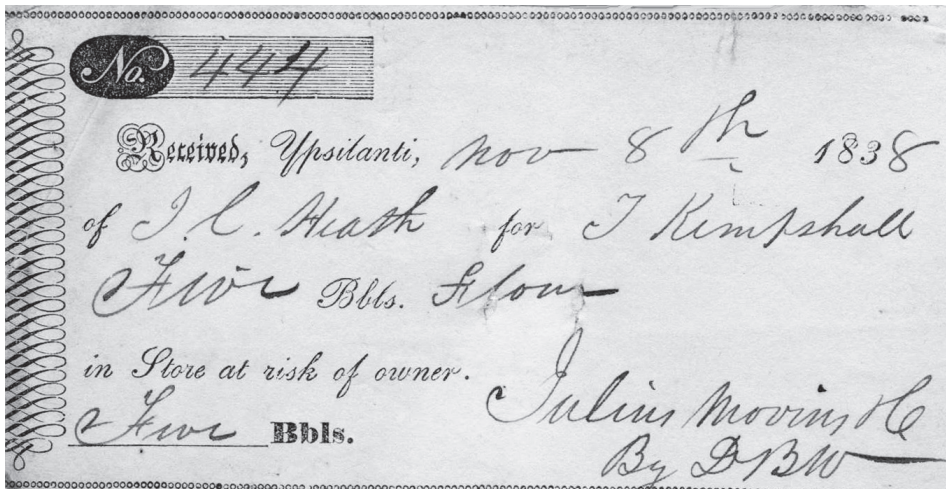 No. 444
Received, Ypsilanti, Nov 8th 1838
of J. C. Heath for T Kempshall
Five Bbls. Flour
in Store at risk of owner.
Five Bbls.
Julius Movius & Co
By DBW